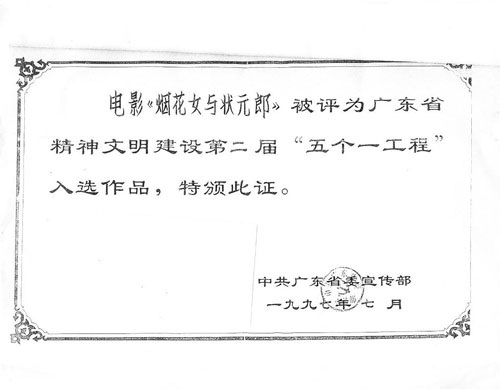 电影《烟花女与状元郎》被评为广东省
精神文明建设第二届“五个一工程”
入选作品，特颁此证。
中共广东省委宣传部
一九九七年七月